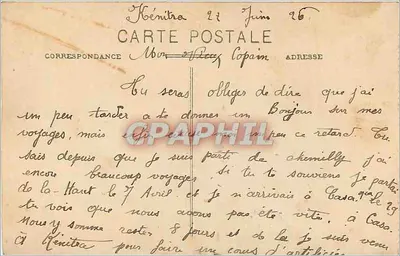 Kénitra 22 Juin 26
CARTE POSTALE
CORRESPONDANCE Mon Vieux Copain ADRESSE
Tu seras obliger de dire que j'ai
un peu tarder a te donner un Bonjour sur mes
voyages, mais un peu ce retard Tu
CPARPHIL
sais depuis que je suis parti de j'ai
encore beaucoup voyages si tu te souviens je partais
de la-Haut le 7 Avril et je n'arrivais à Casa que le 29
tu vois que nous avons pas été vite. à Casa
Nous y sommes rester 8 jours et de la je suis venu
à Kénitra pour faire un cours